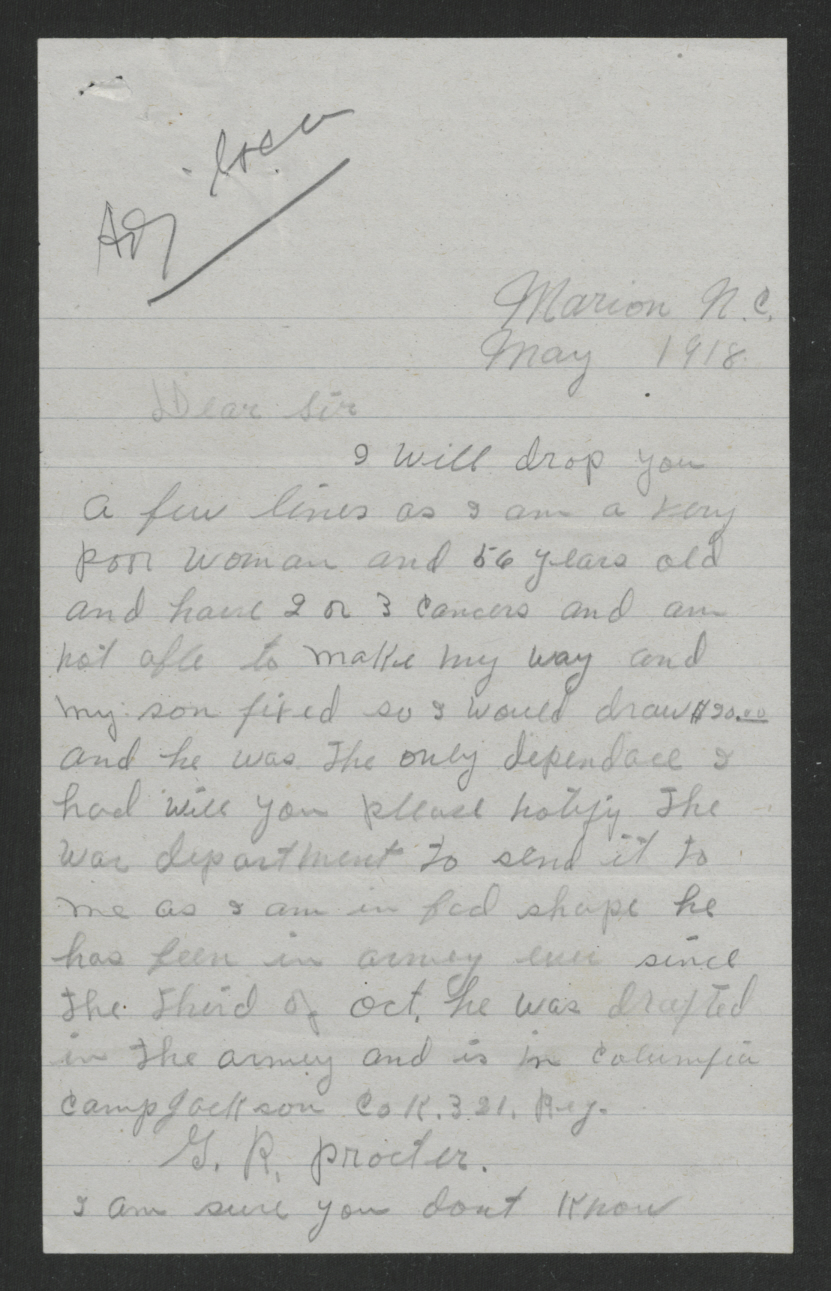 Adj.
Marion N.C.
May 1918.
Dear Sir
I will drop you
a few lines as I am a very
poor woman and 56 years old
and have 2 or 3 cancers and am
not able to make my way and
my son fixed so I would draw $20.00
and he was the only dependace I
had will you please notify the
War department to send it to
me as I am in bad shape he
has been in armey ever since
the third of oct. he was drafted
in the armey and is in Columbia
camp Jackson Co K. 321. Reg.
G. R. procter.
I am sure you dont know